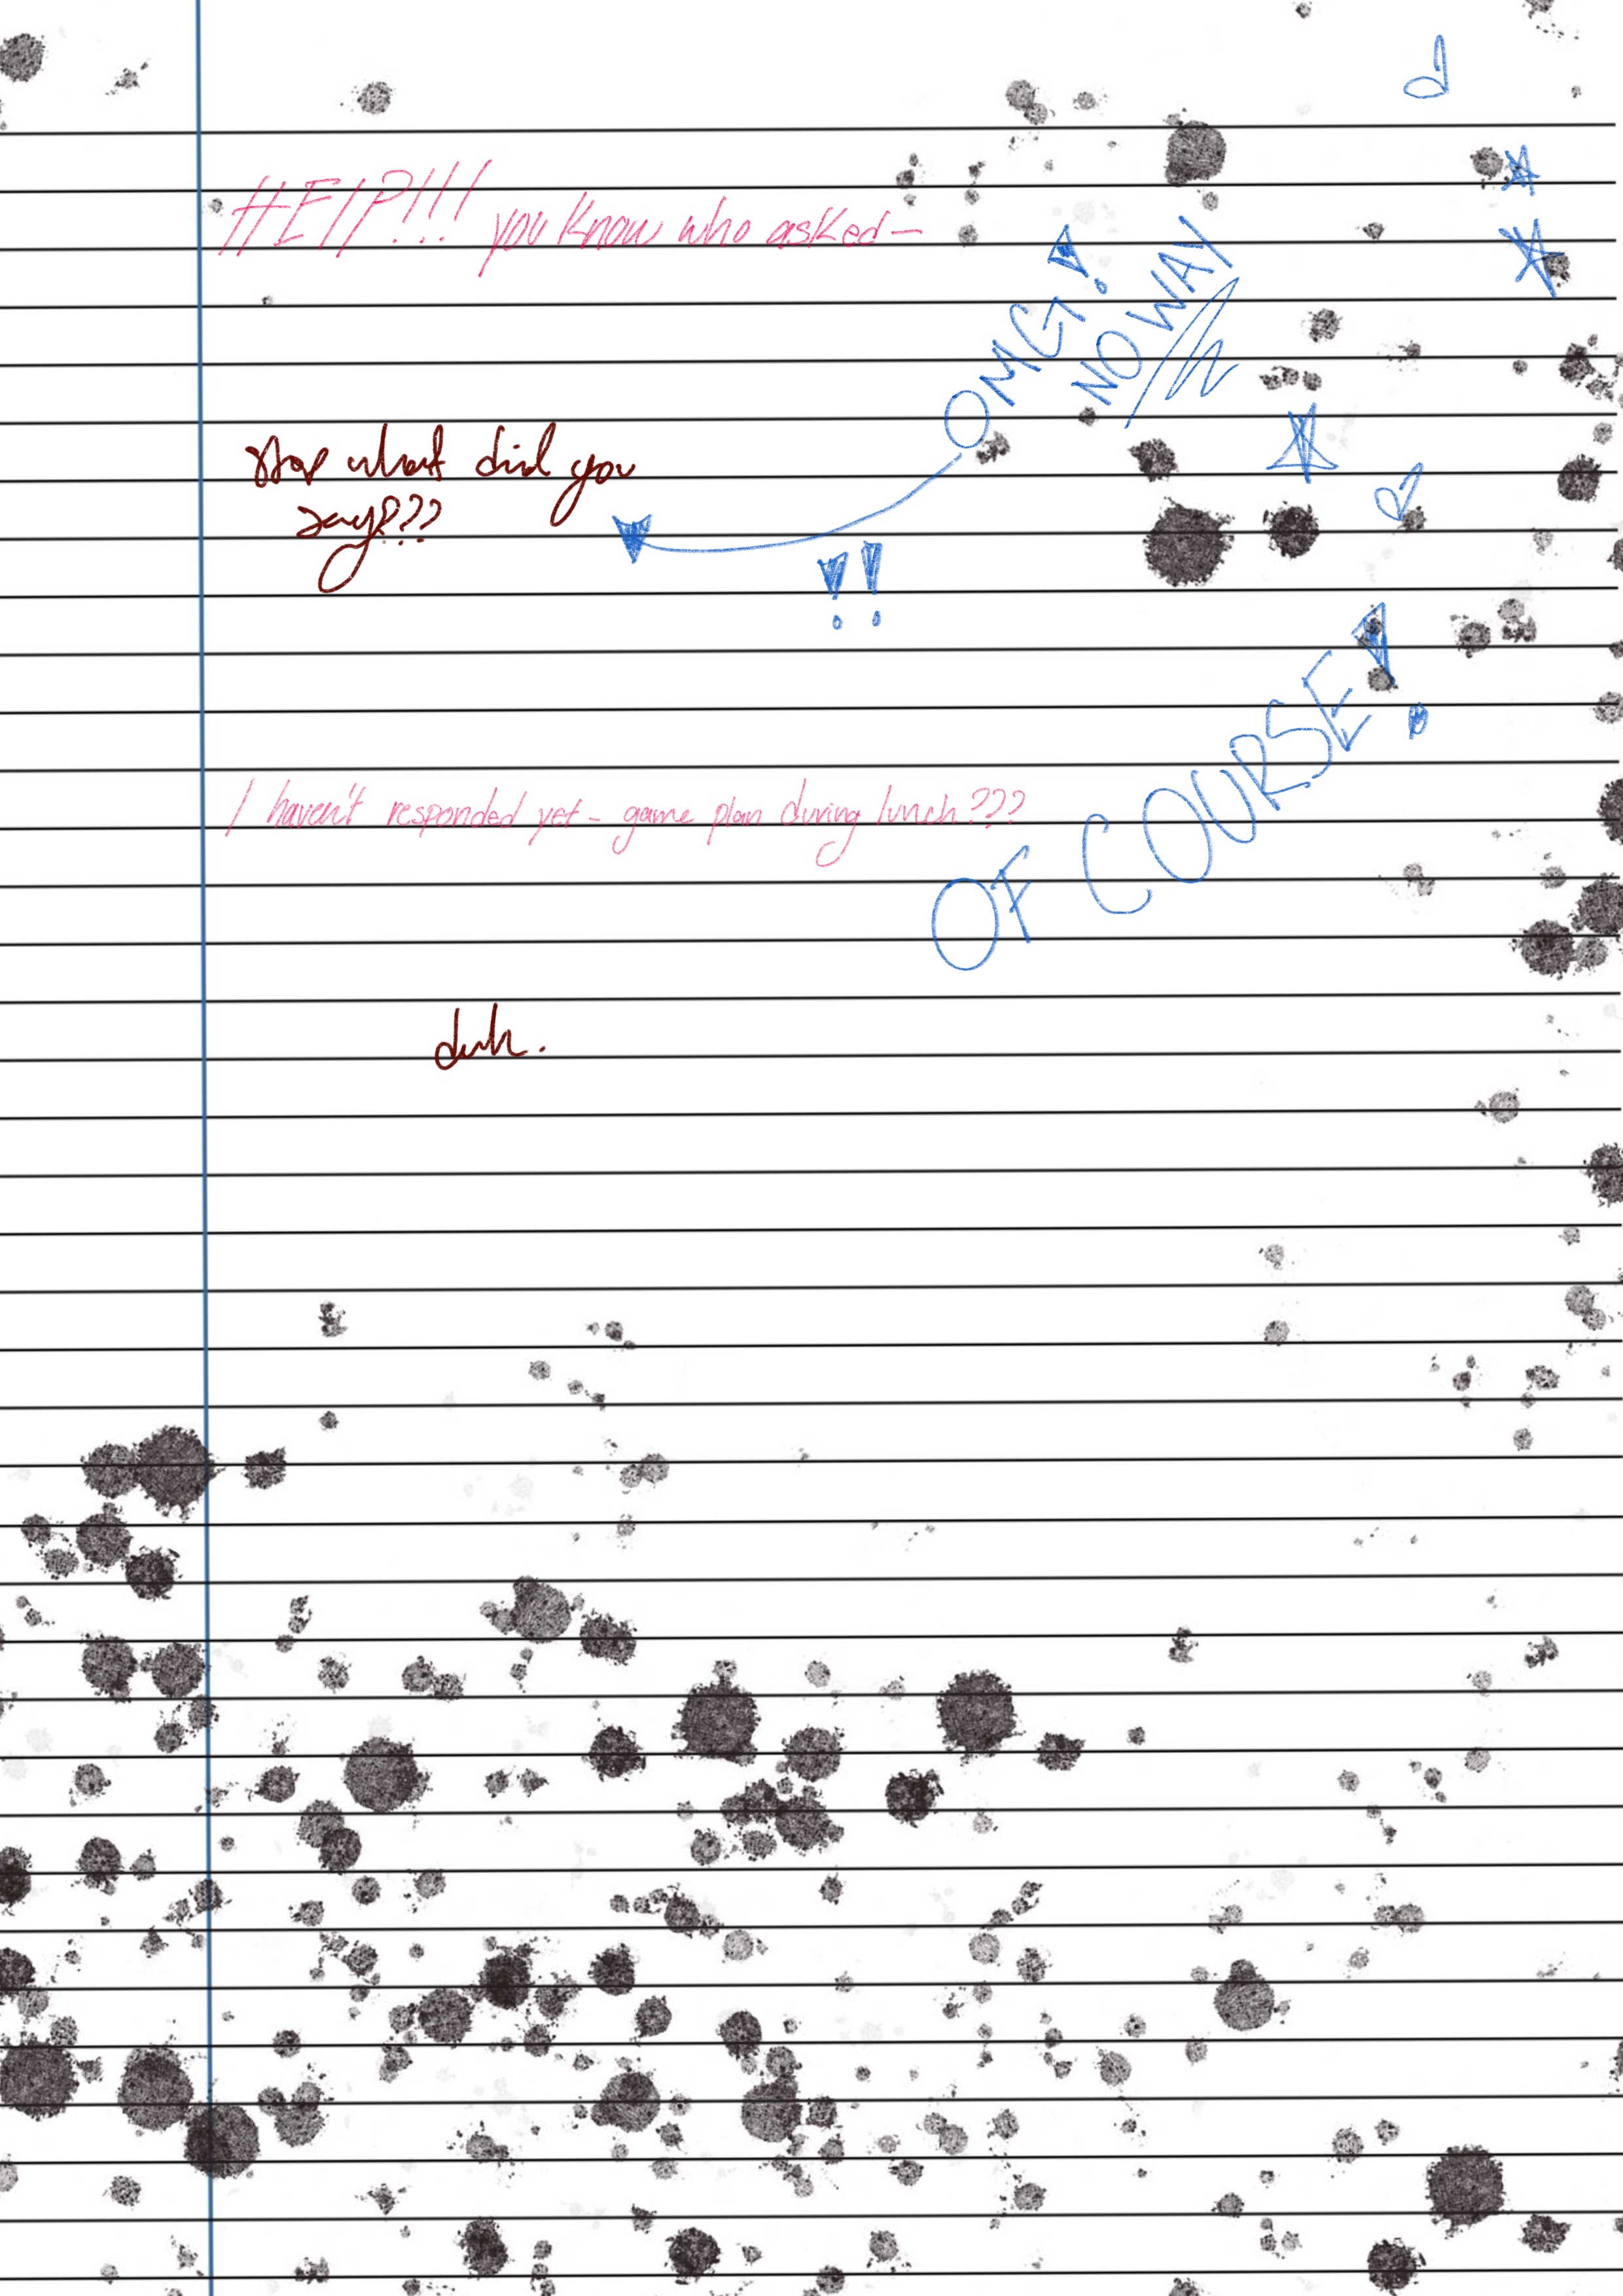 HElP!!! you know who asked-
OMG! NO WAY
stop what did you
say???
!!
I haven't responded yet - game plan during lunch???
OF COURSE!
duh.